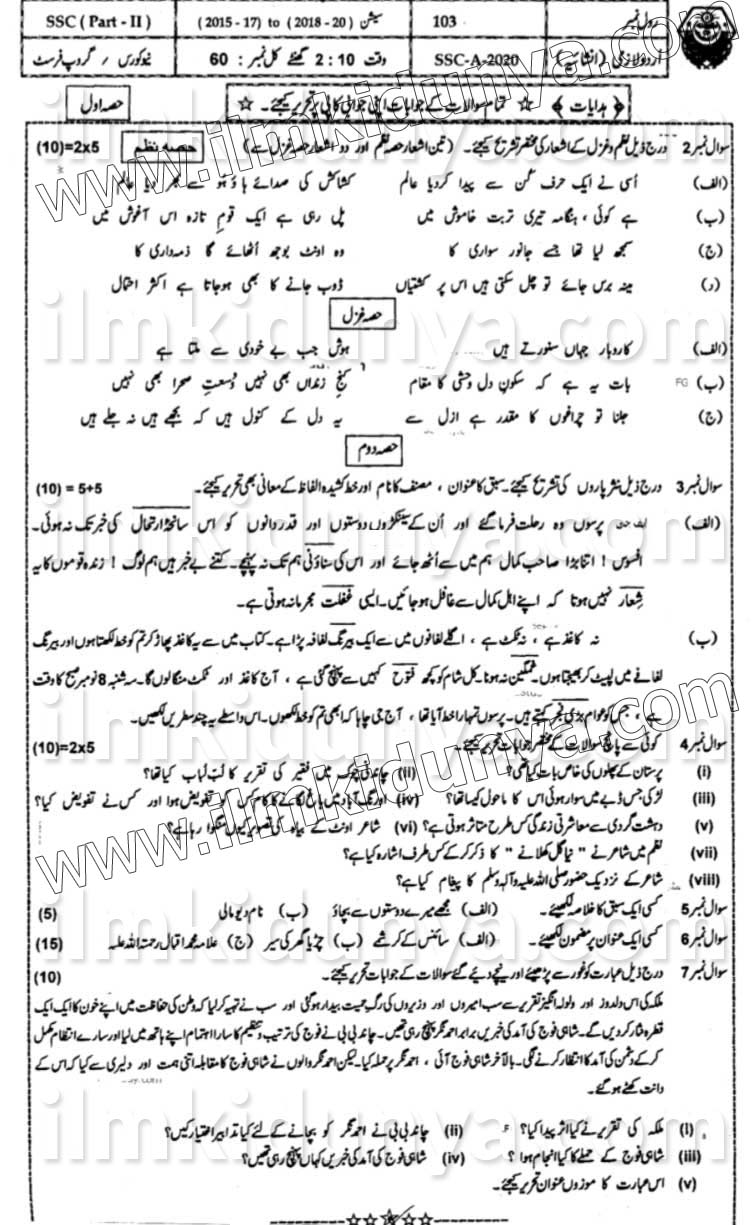 رول نمبر 103 سیشن (2015 - 17) to (2018 - 20) SSC ( Part - II )
اردو لازمی (انشائیہ) SSC-A-2020 وقت 2 : 10 گھنٹے کل نمبر : 60 نیو کورس / گروپ فرسٹ
﴿ ہدایات ﴾ ☆ تمام سوالات کے جوابات اپنی جوابی کاپی پر تحریر کیجئے۔ ☆ حصہ اول
سوال نمبر 2 درج ذیل نظم و غزل کے اشعار کی مختصر تشریح کیجئے۔ (تین اشعار حصہ نظم اور دو اشعار حصہ غزل سے) حصہ نظم (10)=2x5
(الف) اُسی نے ایک حرف کُن سے پیدا کردیا عالم کشاکش کی صدائے ہاؤ ہو سے بھر دیا عالم
(ب) ہے کوئی ، ہنگامہ تیری تربت خاموش میں پل رہی ہے ایک قوم تازہ اس آغوش میں
(ج) سمجھ لیا تھا جسے جانور سواری کا وہ اونٹ بوجھ اُٹھائے گا ذمہ داری کا
(د) مینہ برس جائے تو چل سکتی ہیں اس پر کشتیاں ڈوب جانے کا بھی ہوجاتا ہے اکثر احتمال
حصہ غزل
(الف) کاروبار جہاں سنورتے ہیں ہوش جب بے خودی سے ملتا ہے
(ب) FG بات یہ ہے کہ سکون دل وحشی کا مقام کنج زنداں بھی نہیں وُسعتِ صحرا بھی نہیں
(ج) جلنا تو چراغوں کا مقدر ہے ازل سے یہ دل کے کنول ہیں کہ بجھے ہیں نہ جلے ہیں
حصہ دوم
سوال نمبر 3 درج ذیل نثر پاروں کی تشریح کیجئے۔ سبق کا عنوان ، مصنف کا نام اور خط کشیدہ الفاظ کے معانی بھی تحریر کیجئے۔ (10) = 5+5
(الف) پرسوں وہ رحلت فرما گئے اور اُن کے سینکڑوں دوستوں اور قدردانوں کو اس سانحۂ ارتحال کی خبر تک نہ ہوئی۔
افسوس ! اتنا بڑا صاحب کمال ہم میں سے اُٹھ جائے اور اس کی سناؤنی ہم تک نہ پہنچے۔ کتنے بے خبر ہیں ہم لوگ ! زندہ قوموں کا یہ
شعار نہیں ہوتا کہ اپنے اہل کمال سے غافل ہوجائیں۔ ایسی غفلت مجرمانہ ہوتی ہے۔
(ب) نہ کاغذ ہے ، نہ ٹکٹ ہے ، اگلے لفافوں میں سے ایک بیرنگ لفافہ پڑا ہے۔ کتاب میں سے یہ کاغذ پھاڑ کر تم کو خط لکھتا ہوں اور بیرنگ
لفافے میں لپیٹ کر بھیجتا ہوں۔ غمگین نہ ہونا۔ کل شام کو کچھ فتوح کہیں سے پہنچ گئی ہے ، آج کاغذ اور ٹکٹ منگا لوں گا۔ سہ شنبہ 8 نومبر صبح کا وقت
ہے ، جس کو عوام بڑی فجر کہتے ہیں۔ پرسوں تمہارا خط آیا تھا ، آج جی چاہا کہ ابھی تم کو خط لکھوں۔ اس واسطے یہ چند سطریں لکھیں۔
سوال نمبر 4 کوئی سے پانچ سوالات کے مختصر جوابات تحریر کیجئے۔ (10)=2x5
(i) پرستان کے پھلوں کی خاص بات کیا تھی؟ (ii) چاندنی چوک میں فقیر کی تقریر کا لب لباب کیا تھا؟
(iii) لڑکی جس ڈبے میں سوار ہوئی اس کا ماحول کیسا تھا؟ (iv) اورنگ آباد میں باغ لگانے کا کام کس کو تفویض ہوا اور کس نے تفویض کیا؟
(v) دہشت گردی سے معاشرتی زندگی کس طرح متاثر ہوتی ہے؟ (vi) شاعر اونٹ کے بیاہ کی تصویر کیوں منگوا رہا ہے؟
(vii) نظم میں شاعر نے " نیا گل کھلانے " کا ذکر کرکے کس طرف اشارہ کیا ہے؟
(viii) شاعر کے نزدیک حضور صلی اللہ علیہ وآلہ وسلم کا پیغام کیا ہے؟
سوال نمبر 5 کسی ایک سبق کا خلاصہ لکھیئے۔ (الف) مجھے میرے دوستوں سے بچاؤ (ب) نام دیو مالی (5)
سوال نمبر 6 کسی ایک عنوان پر مضمون لکھیئے۔ (الف) سائنس کے کرشمے (ب) چڑیا گھر کی سیر (ج) علامہ محمد اقبال رحمتہ اللہ علیہ (15)
سوال نمبر 7 درج ذیل عبارت کو غور سے پڑھیئے اور نیچے دیئے گئے سوالات کے جوابات تحریر کیجئے۔ (10)
ملکہ کی اس دلدوز اور ولولہ انگیز تقریر سے سب امیروں اور وزیروں کی رگ حمیت بیدار ہوگئی اور سب نے تہیہ کرلیا کہ وطن کی حفاظت میں اپنے خون کا ایک ایک
قطرہ نثار کردیں گے۔ شاہی فوج کی آمد کی خبریں برابر احمد نگر پہنچ رہی تھیں۔ چاند بی بی نے فوج کی ترتیب و تنظیم کا سارا اہتمام اپنے ہاتھ میں لیا اور سارے انتظام مکمل
کرکے دشمن کی آمد کا انتظار کرنے لگی۔ بالآخر شاہی فوج آئی ، احمد نگر پر حملہ کیا۔ لیکن احمد نگر والوں نے شاہی فوج کا مقابلہ اتنی ہمت اور دلیری سے کیا کہ اس کے
دانت کھٹے ہوگئے۔
(i) ملکہ کی تقریر نے کیا اثر پیدا کیا؟ (ii) چاند بی بی نے احمد نگر کو بچانے کے لئے کیا تدابیر اختیار کیں؟
(iii) شاہی فوج کے حملے کا کیا انجام ہوا ؟ (iv) شاہی فوج کی آمد کی خبریں کہاں پہنچ رہی تھیں؟
(v) اس عبارت کا موزوں عنوان تحریر کیجئے۔
☆☆☆☆☆
www.ilmkidunya.com